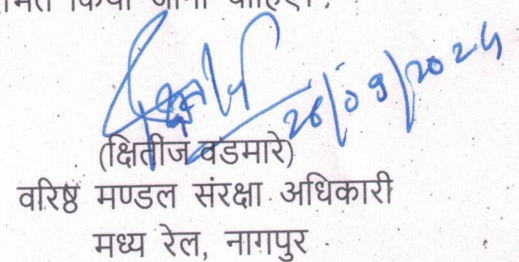 किया जाना चाहिए।
26/09/2024
(क्षितीज वडमारे)
वरिष्ठ मण्डल संरक्षा अधिकारी
मध्य रेल, नागपुर